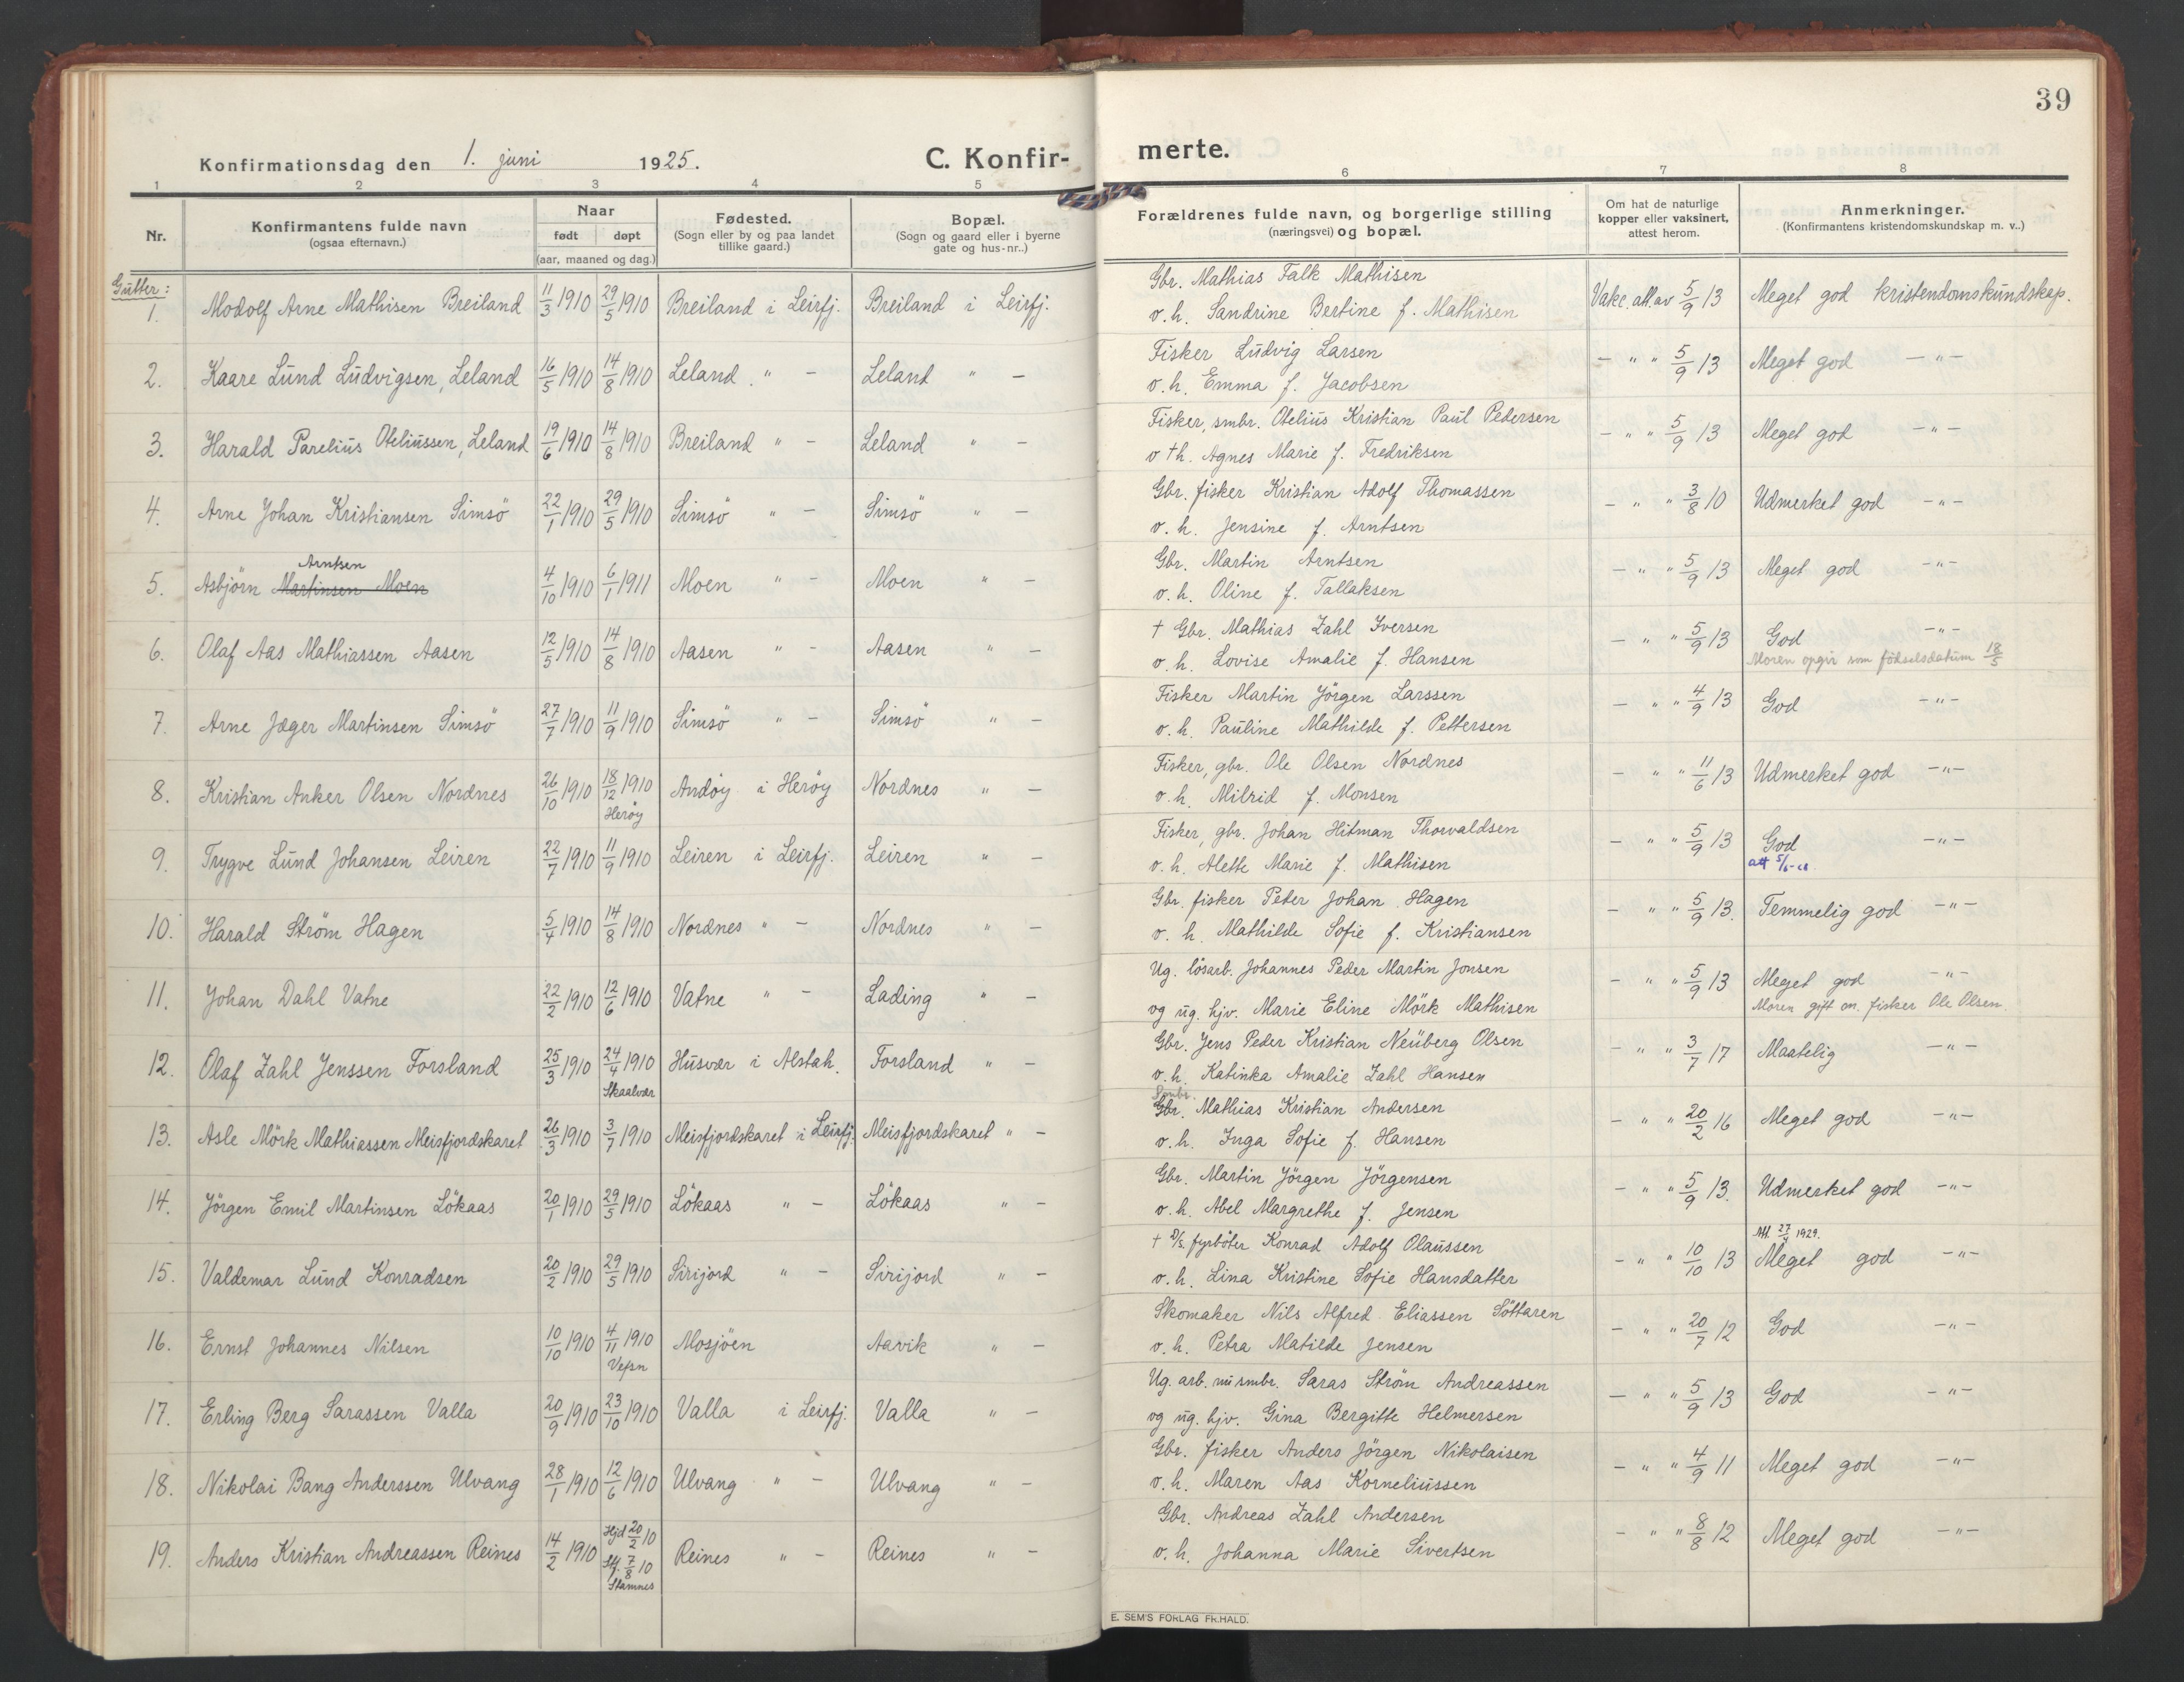 39
Konfirmationsdag den 1. juni 1925.
C. Konfir-
merte.
1 2 3 4 5 6 7 8
Nr.
Konfirmantens fulde navn
(ogsaa efternavn.)
Naar
født døpt
(aar, maaned og dag.)
Fødested.
(Sogn eller by og paa landet
tillike gaard.)
Bopæl.
(Sogn og gaard eller i byerne
gate og hus-nr..)
Forældrenes fulde navn, og borgerlige stilling
(næringsvei) og bopæl.
Om hat de naturlige
kopper eller vaksinert,
attest herom.
Anmerkninger.
(Konfirmantens kristendomskundskap m. v..)
Gutter:
1. Modolf Arne Mathisen Breiland 11/3 1910 29/5 1910 Breiland i Leirfj. Breiland i Leirfj.
Gbr. Mathias Falk Mathisen
o.h. Sandrine Bertine f. Mathisen
Vakc. att. av 5/9 13 Meget god kristendomskundskap.
2. Kaare Lund Ludvigsen, Leland 16/5 1910 14/8 1910 Leland " - Leland " -
Fisker Ludvig Larsen
o.h. Emma f. Jacobsen
- " " 5/9 13 Meget god -"-
3. Harald Parelius Oteliussen, Leland 19/6 1910 14/8 1910 Breiland " - Leland " -
Fisker, smbr. Otelius Kristian Paul Pedersen
o †h. Agnes Marie f. Fredriksen
- " " 5/9 13 Meget god -"-
4. Arne Johan Kristiansen Simsö 22/1 1910 29/5 1910 Simsö " - Simsö " -
Gbr. fisker Kristian Adolf Thomassen
o.h. Jensine f. Arntsen
- " " 3/8 10 Udmerket god -"-
Arntsen
5. Asbjörn Martinsen Moen 4/10 1910 6/1 1911 Moen " - Moen " -
Gbr. Martin Arntsen
o.h. Oline f. Tallaksen
- " " 5/9 13 Meget god -"-
6. Olaf Aas Mathiassen Aasen 12/5 1910 14/8 1910 Aasen " - Aasen " -
† Gbr. Mathias Zahl Iversen
o.h. Lovise Amalie f. Hansen
- " " 5/9 13 God -"-
Moren opgir som födselsdatum 18/5
7. Arne Jæger Martinsen Simsö 27/7 1910 11/9 1910 Simsö " - Simsö " -
Fisker Martin Jörgen Larssen
o.h. Pauline Mathilde f. Pettersen
- " " 4/9 13 God -"-
8. Kristian Anker Olsen Nordnes 26/10 1910 18/12 1910 Andöy i Heröy Nordnes " -
Heröy
Fisker, gbr. Ole Olsen Nordnes
o.h. Milrid f. Monsen
- " " 11/6 13 Udmerket god -"-
9. Trygve Lund Johansen Leiren 22/7 1910 11/9 1910 Leiren i Leirfj. Leiren " -
Fisker, gbr. Johan Hitman Thorvaldsen
o.h. Alette Marie f. Mathisen
- " " 5/9 13 God -"-
10. Harald Ström Hagen 5/4 1910 14/8 1910 Nordnes " - Nordnes " -
Gbr. fisker Peter Johan Hagen
o.h. Mathilde Sofie f. Kristiansen
- " " 5/9 13. Temmelig god -"-
11. Johan Dahl Vatne 22/2 1910 12/6 1910 Vatne " - Lading " -
Ug. lösarb. Johannes Peder Martin Jonsen
og ug. hjv. Marie Eline Mörk Mathisen
- " " 5/9 13 Meget god -"-
Moren gift m. fisker Ole Olsen.
12. Olaf Zahl Jenssen Forsland 25/3 1910 24/4 1910 Husvær i Alstah. Forsland " -
Skaalvær
Gbr. Jens Peder Kristian Neuberg Olsen
o.h. Katinka Amalie Zahl Hansen
- " " 3/7 17 Maatelig -"-
Smbr.
13. Asle Mörk Mathiassen Meisfjordskaret 26/3 1910 3/7 1910 Meisfjordskaret i Leirfj. Meisfjordskaret " -
Gbr. Mathias Kristian Andersen
o.h. Inga Sofie f. Hansen
- " " 20/2 16 Meget god -"-
14. Jörgen Emil Martinsen Lökaas 20/1 1910 29/5 1910 Lökaas " - Lökaas " -
Gbr. Martin Jörgen Jörgensen
o.h. Abel Margrethe f. Jensen
- " " 5/9 13. Udmerket god -"-
15. Valdemar Lund Konradsen 20/2 1910 29/5 1910 Sirijord " - Sirijord " -
† D/s. fyrböter Konrad Adolf Olaussen
o.h. Lina Kristine Sofie Hansdatter
- " " 10/10 13 Meget god -"-
16. Ernst Johannes Nilsen 10/10 1910 4/11 1910 Mosjöen Aavik " -
Vefsn
Skomaker Nils Alfred Eliassen Söttaren
o.h. Petra Matilde Jensen
- " " 20/7 12 God -"-
17. Erling Berg Sarassen Valla 20/9 1910 23/10 1910 Valla i Leirfj. Valla " -
Ug. arb. nu smbr. Saras Ström Andreassen
og ug. hjv. Gina Bergitte Helmersen
- " " 5/9 13 God -"-
18. Nikolai Bang Anderssen Ulvang 28/1 1910 12/6 1910 Ulvang " - Ulvang " -
Gbr. fisker Anders Jörgen Nikolaisen
o.h. Maren Aas Korneliussen
- " " 4/9 11 Meget god -"-
19. Anders Kristian Andreassen Reines 14/2 1910 Hjd 20/2 10 Reines " - Reines " -
7/8 10
Stamnes
Gbr. Andreas Zahl Andersen
o.h. Johanna Marie Sivertsen
- " " 8/8 12 Meget god -"-
E. SEM'S FORLAG FR.HALD.